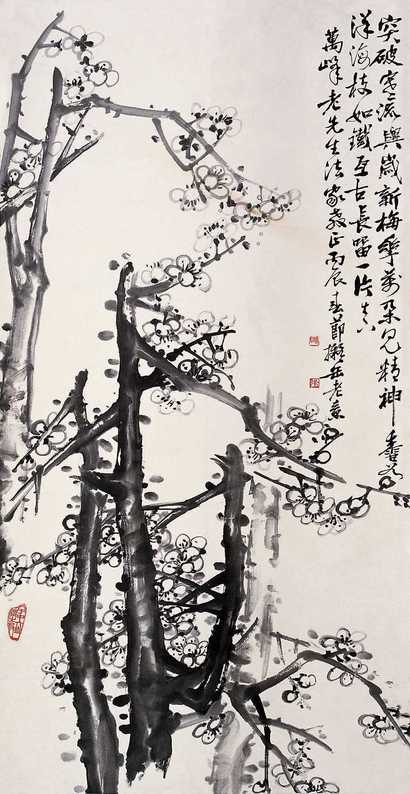 突破寒流與歲新梅華萬朵見精神香
洋海枝如鐵亙古長留一片春
萬峰老先生法家教正丙辰春鄭擬缶老意